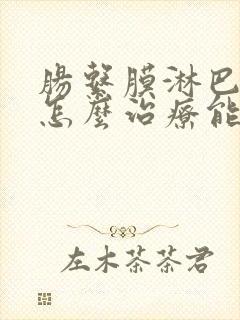 腸繫膜淋巴
怎麼治療能
左木茶茶君